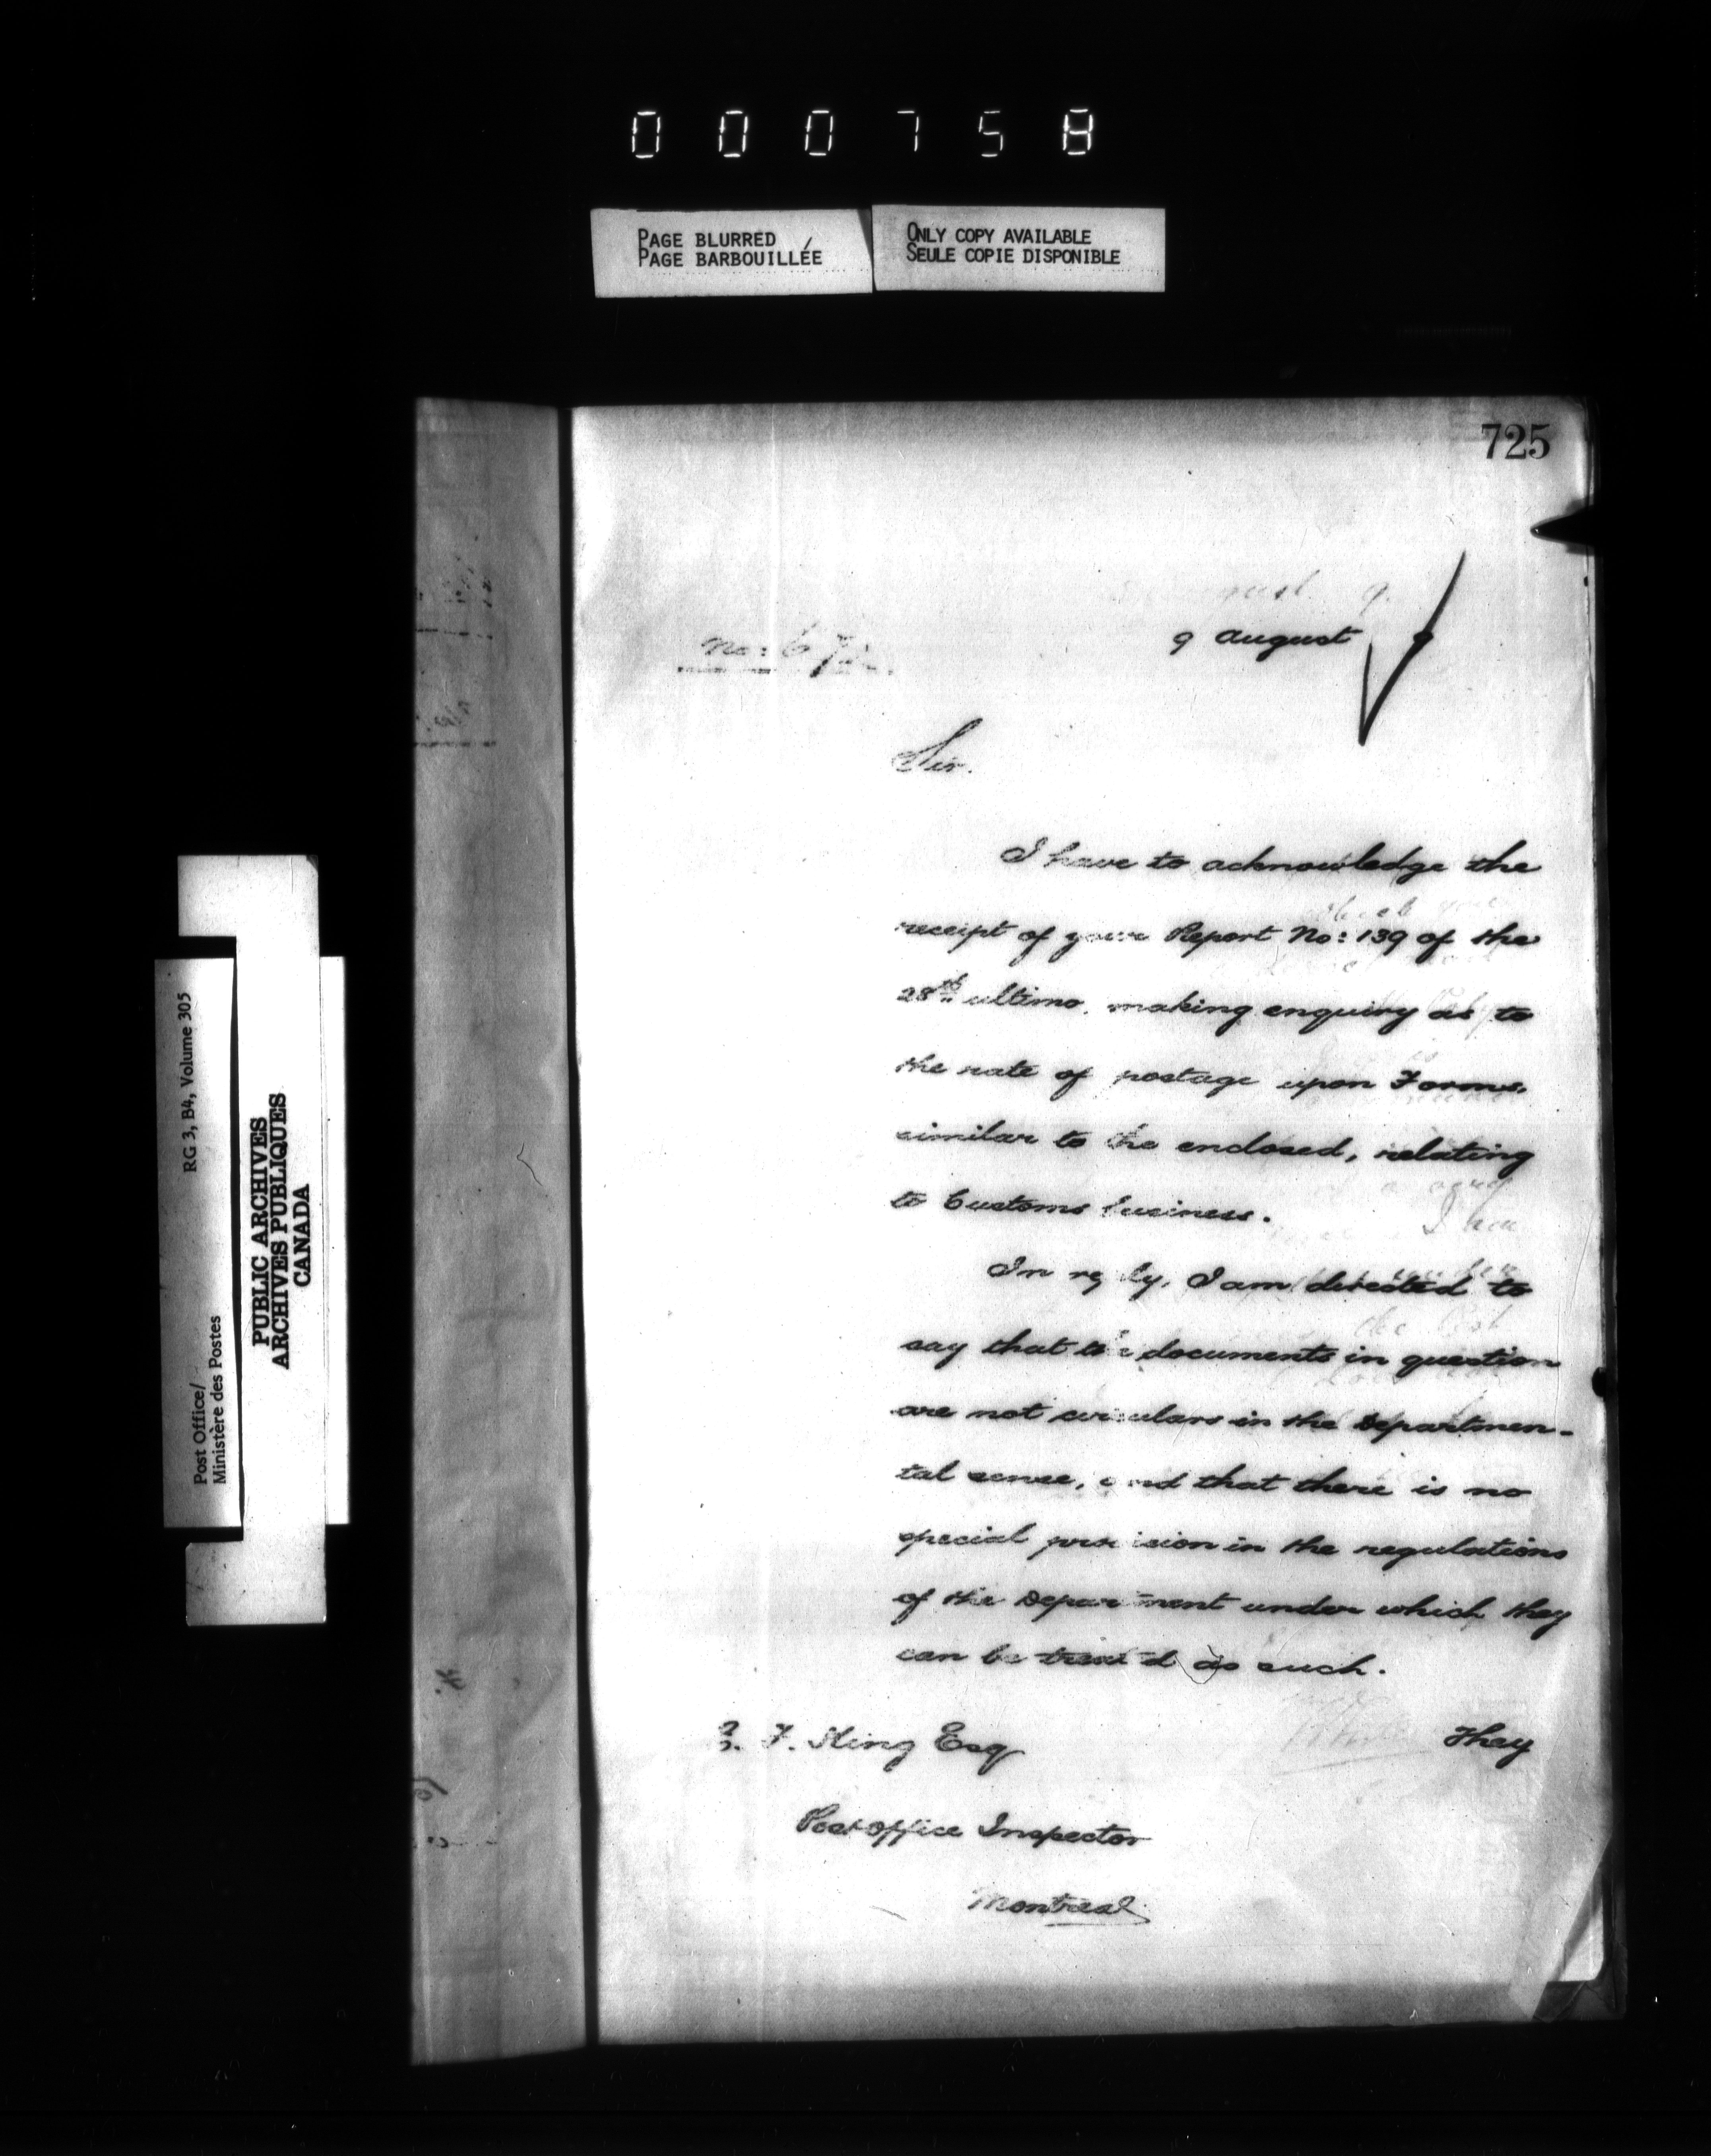 000758
PAGE BLURRED
PAGE BARBOUILLÉE
ONLY COPY AVAILABLE
SEULE COPIE DISPONIBLE
725
9 August
No: 67
Sir.
I have to acknowledge the
receipt of your Report No: 139 of the
28th ultimo, making enquiry as to
the rate of postage upon Forms,
similar to the enclosed, relating
to Customs business.
In reply, I am directed to
say that the documents in question
are not circulars in the Departmen-
tal sense, and that there is no
special provision in the regulations
of the Department under which they
can be treated as such.
They
F. King Esq
Post office Inspector
Montreal
RG 3, B4, Volume 305
Post Office/
Ministère des Postes
PUBLIC ARCHIVES
ARCHIVES PUBLIQUES
CANADA